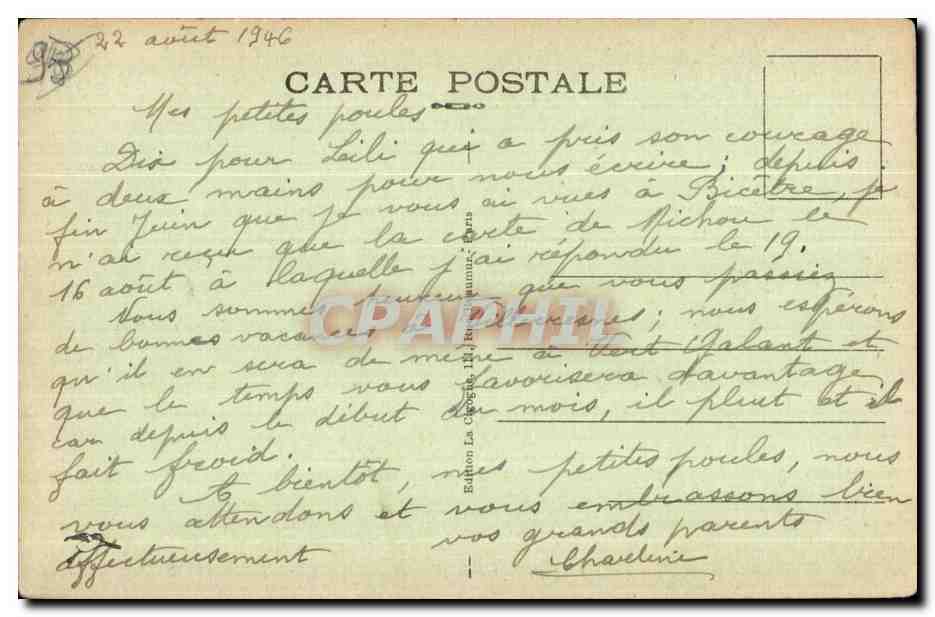 93
22 août 1946
CARTE POSTALE
Mes petites poules
Dix pour Lili qui a pris son courage
à deux mains pour nous écrire; depuis
fin Juin que je vous ai vues à Bicêtre, je
n'ai reçu que la carte de Michou le
16 août à laquelle j'ai répondu le 19.
Nous sommes heureux que vous passiez
de bonnes vacances à ; nous espérons
qu'il en sera de même à Vert Galant et
que le temps vous favorisera davantage
car depuis le début du mois, il pleut et il
fait froid.
A bientôt, mes petites poules, nous
vous attendons et vous embrassons bien
affectueusement vos grands parents
Chardine
Edition La Cigogne, 111, Rue Réaumur, Paris
CPAPHIL